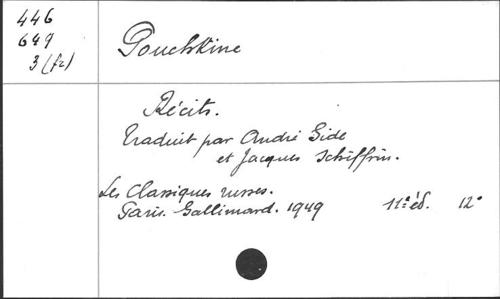 446
649
3 (fr)
Pouchkine
Récits.
Traduit par André Gide
et Jacques Schiffrin.
Les Classiques russes.
Paris. Gallimard. 1949 11e éd. 12°